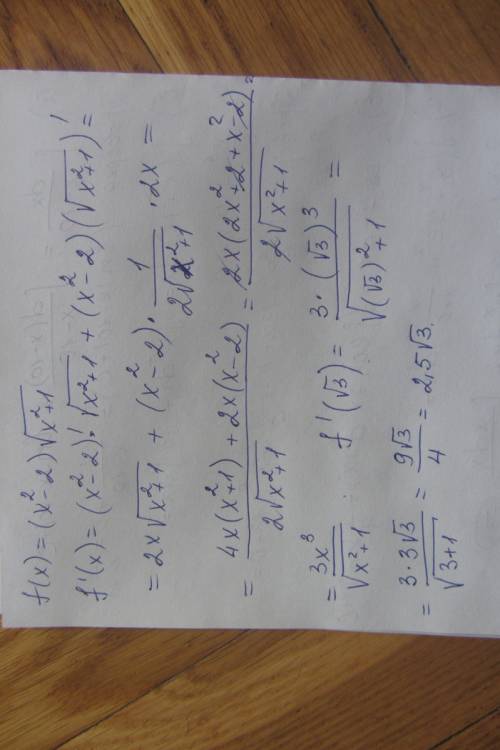 f(x) = (x² - 2)√(x²+1)
f'(x) = (x² - 2)' · √(x²+1) + (x² - 2)(√(x²+1))' =
= 2x√(x²+1) + (x² - 2) · 1/(2√(x²+1)) · 2x =
= (4x(x²+1) + 2x(x² - 2))/(2√(x²+1)) = (2x(2x²+2+x²-2))/(2√(x²+1)) =
= 3x³/√(x²+1) f'(√3) = (3·(√3)³)/√((√3)²+1) =
= (3·3√3)/√(3+1) = 9√3/4 = 2,5√3